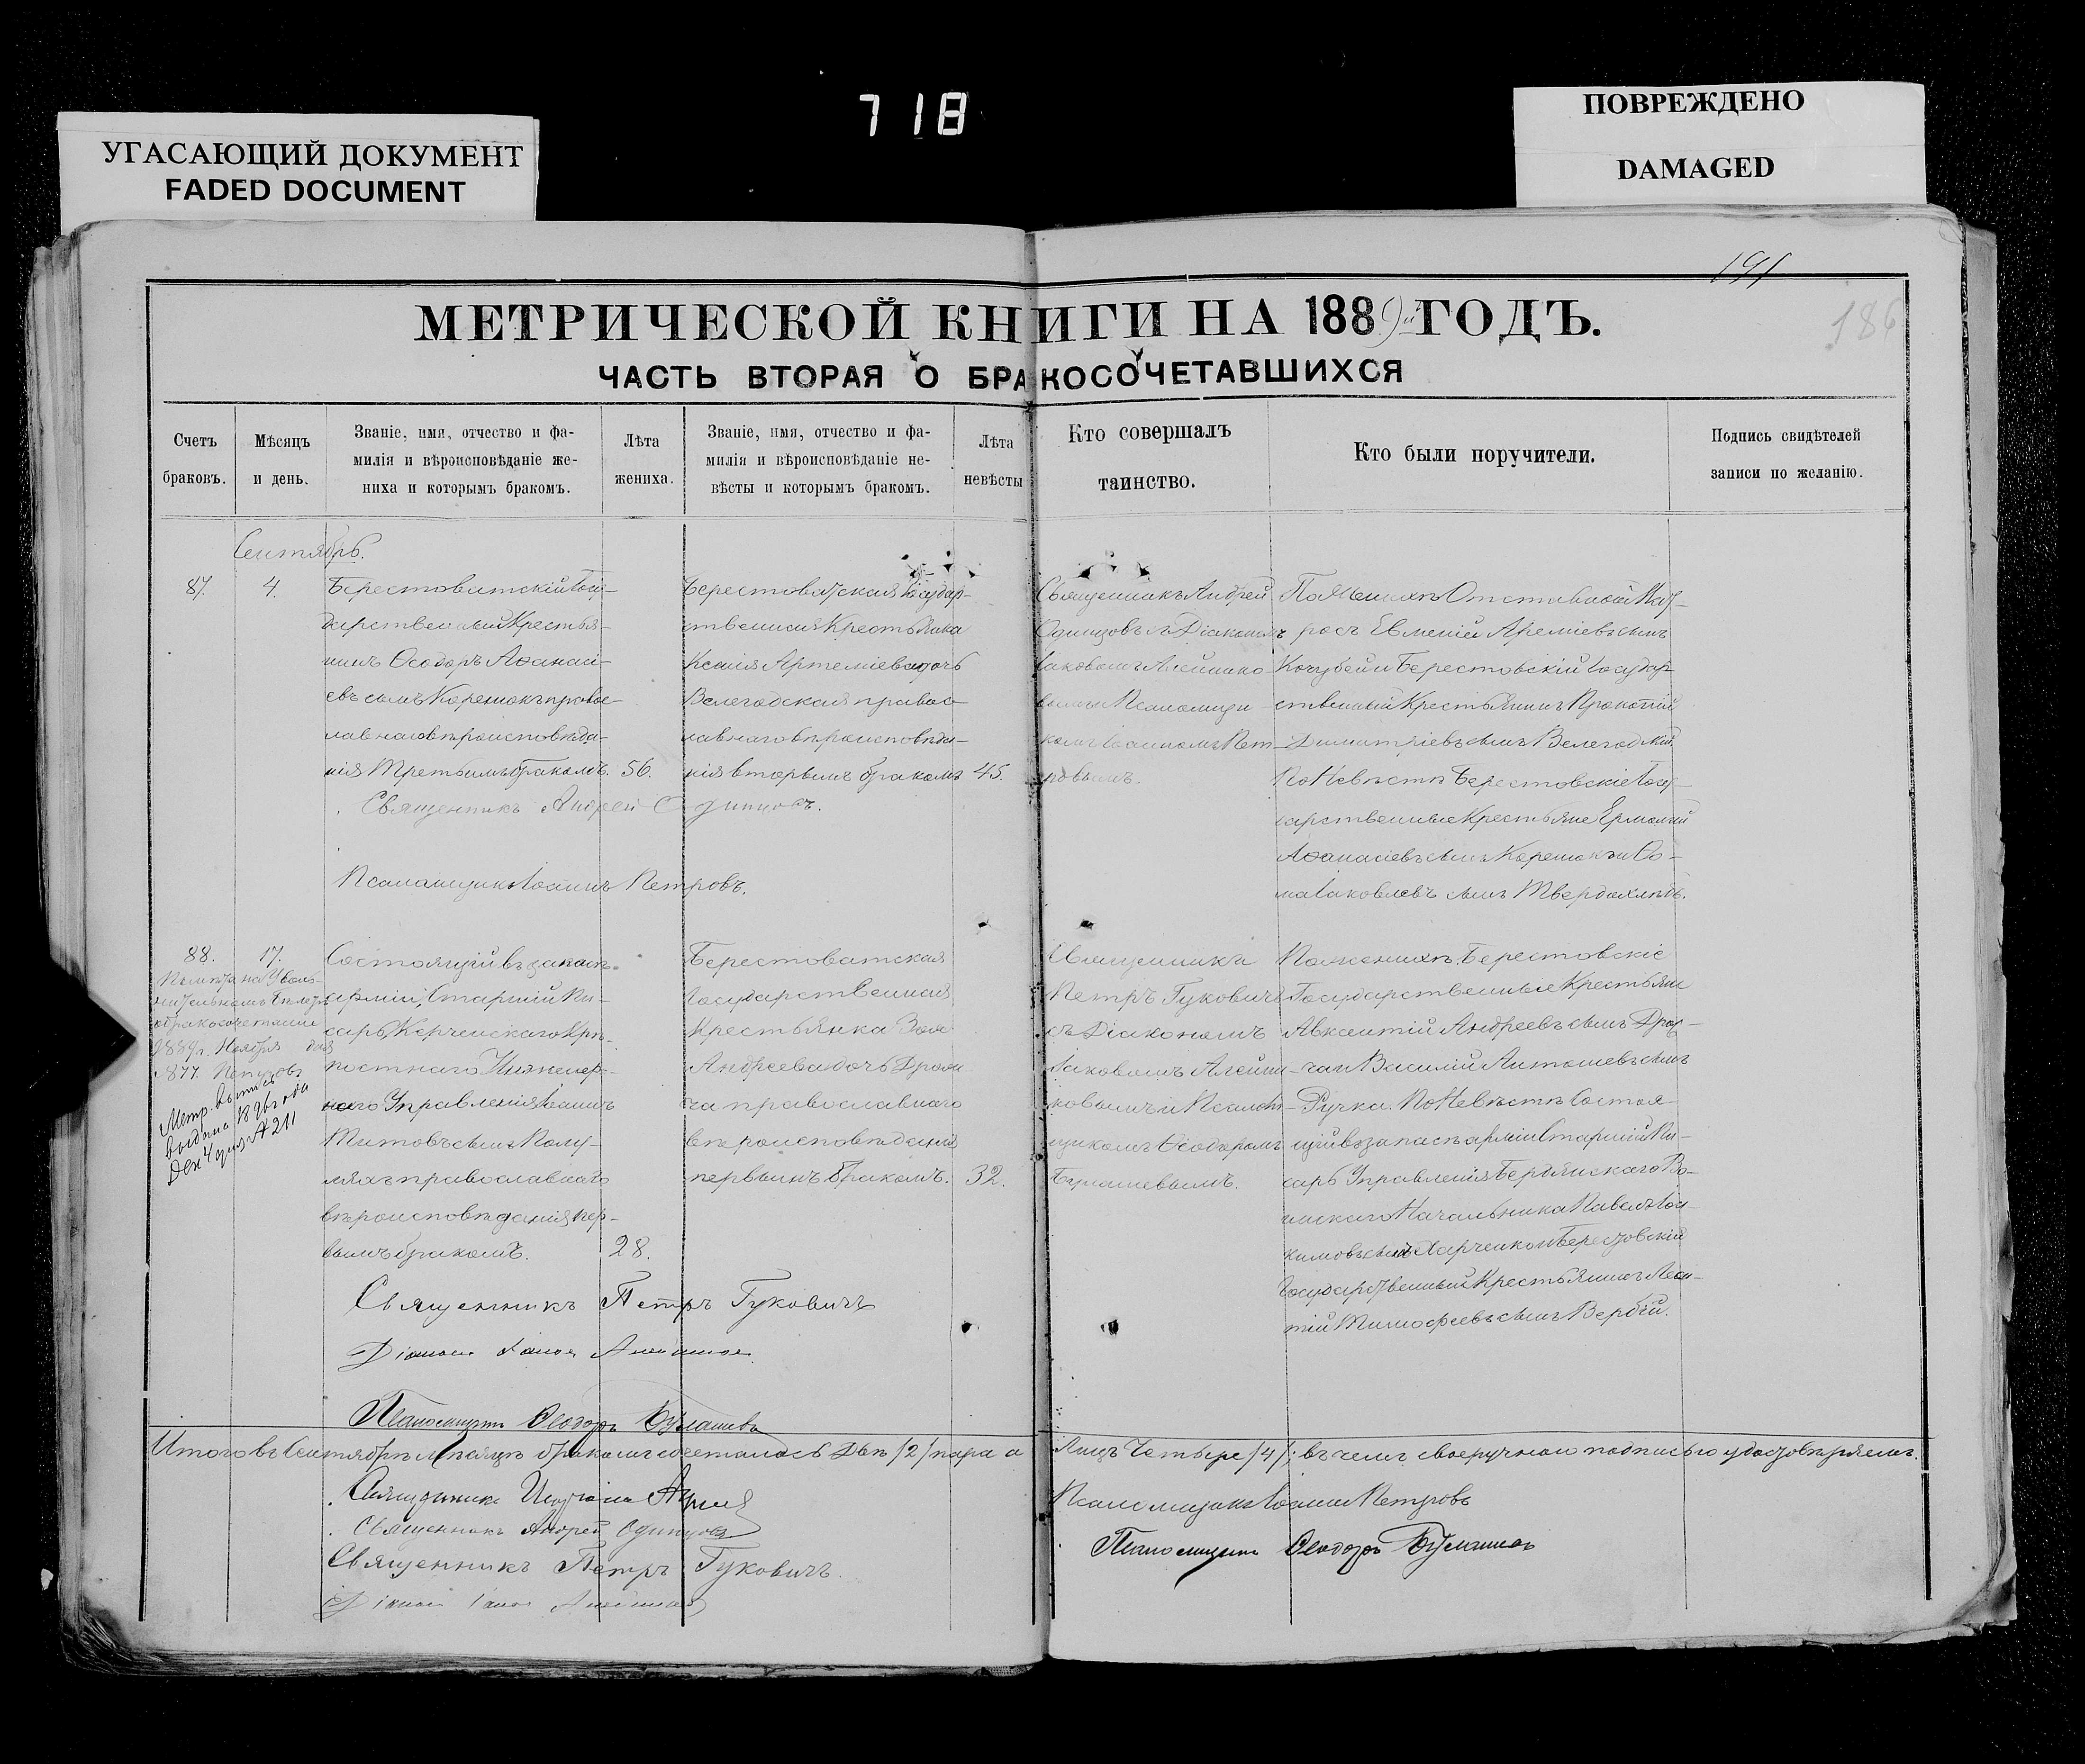 718
УГАСАЮЩИЙ ДОКУМЕНТ
FADED DOCUMENT
ПОВРЕЖДЕНО
DAMAGED
191
186
МЕТРИЧЕСКОЙ КНИГИ НА 1889й ГОДЪ.
ЧАСТЬ ВТОРАЯ О БРАКОСОЧЕТАВШИХСЯ
Счетъ
браковъ.
Мѣсяцъ
и день.
Званіе, имя, отчество и фа-
милія и вѣроисповѣданіе же-
ниха и которымъ бракомъ.
Лѣта
жениха.
Званіе, имя, отчество и фа-
милія и вѣроисповѣданіе не-
вѣсты и которымъ бракомъ.
Лѣта
невѣсты
Кто совершалъ
таинство.
Кто были поручители.
Подпись свидѣтелей
записи по желанію.
Сентябрь.
87.
4.
Берестоватскій Госу-
дарственный Крестья-
нинъ Ѳеодоръ Аѳанасі-
евъ сынъ Корешокъ правос-
лавнаго вѣроисповѣда-
нія Третьимъ бракомъ.
56.
Берестоватская Государ-
ственная Крестьянка
Ксенія Артеміева дочь
Велегодская правос-
лавнаго вѣроисповѣда-
нія вторымъ бракомъ
45.
Священникъ Андрей
Одинцовъ съ Діакономъ
Іаковомъ
Псаломщи-
комъ Іоанномъ Пет-
ровымъ.
По Женихѣ Отставной
Евменій сынъ
Кочубей и Берестовскій Государ-
ственный Крестьянинъ Прокопій
Димитріевъ сынъ Велегодскій.
По Невѣстѣ Берестовскіе Госу-
дарственные Крестьяне Ермолай
Аѳанасіевъ сынъ Корешокъ и Ѳо-
ма Іаковлевъ сынъ Твердохлѣбъ.
Священникъ Андрей Одинцовъ.
Псаломщикъ Іоаннъ Петровъ.
88.
17.
на Уволь-
нительномъ билетѣ
о бракосочетаніи
1889г. Ноября дня
№877. Петровъ
Метр. выпись
выдана 1896 года
Дек 4 дня № 211
Состоящій въ запасѣ
арміи, Старшій Пи-
сарь, Керченскаго Крѣ-
постнаго Инженер-
наго Управленія Іоаннъ
Титовъ сынъ Полу-
ляхъ православнаго
вѣроисповѣданія пер-
вымъ бракомъ.
28.
Берестоватская
Государственная
Крестьянка Зоя
Андреева дочь Драга-
на православнаго
вѣроисповѣданія
первымъ бракомъ.
32.
Священникъ
Петръ Гуковичъ
съ Діакономъ
Іаковомъ
Псалом-
щикомъ Ѳеодоромъ
Булашевымъ.
По женихѣ: Берестовскіе
Государственные Крестьяне
Авксентій Андреевъ сынъ
Василій сынъ
Ручка. По Невѣстѣ Состоя-
щій въ запасѣ арміи Старшій Пи-
сарь Управленія Бердянскаго Во-
инскаго Начальника Павелъ Іоа-
кимовъ сынъ Харченко и Берестовскій
Государственный Крестьянинъ Леон-
тій Тимофеевъ сынъ Вербій.
Священникъ Петръ Гуковичъ
Діаконъ
Псаломщикъ Ѳеодоръ Булашевъ
Итого въ Сентябрѣ Мѣсяцѣ бракомъ сочеталось Двѣ /2/ пары а Лицъ Четыре /4/; въ чемъ своеручною подписью удостовѣряемъ.
Священникъ
Священникъ Андрей Одинцовъ
Священникъ Петръ Гуковичъ.
Діаконъ
Псаломщикъ Іоаннъ Петровъ
Псаломщикъ Ѳеодоръ Булашевъ